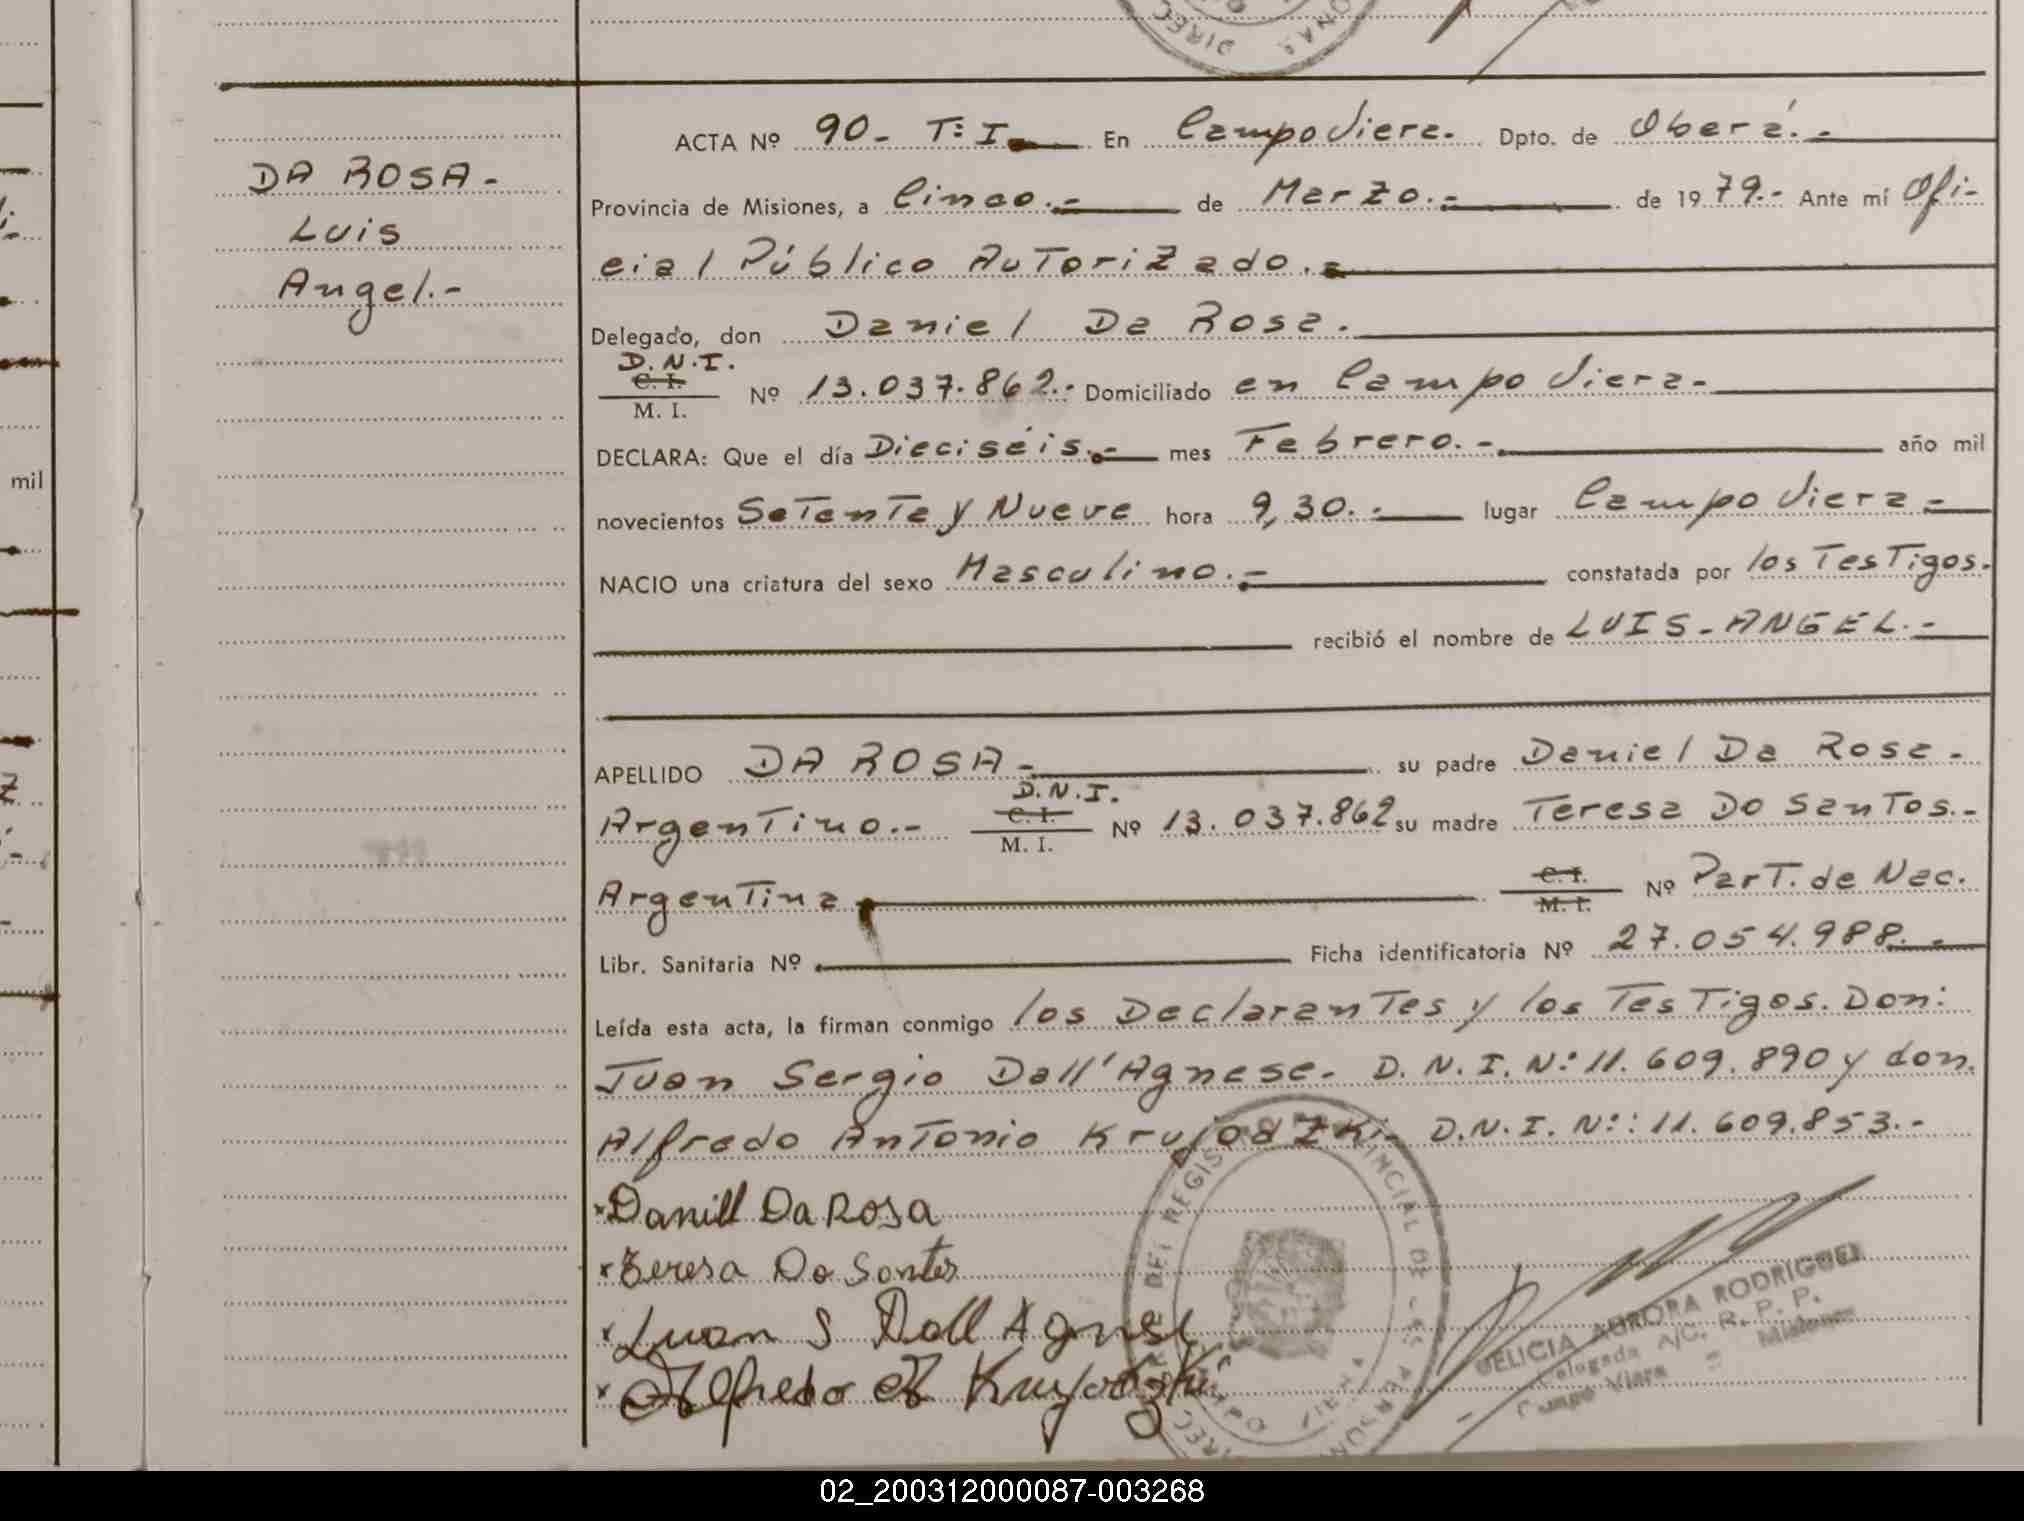 DIREC
ONAS
DA ROSA-
Luis
Angel.-
mil
ACTA Nº 90- Tº I. En Campo Viera. Dpto. de Oberá.-
Provincia de Misiones, a Cinco.- de Marzo.- de 1979.- Ante mí Ofi-
cial Público Autorizado.-
Delegado, don Daniel Da Rosa.
D.N.I.
C. I.
M. I. Nº 13.037.862.- Domiciliado en Campo Viera-
DECLARA: Que el día Dieciséis.- mes Febrero.- año mil
novecientos Setenta y Nueve hora 9,30.- lugar Campo Viera-
NACIO una criatura del sexo Masculino.- constatada por los Testigos.
recibió el nombre de LUIS-ANGEL.-
APELLIDO DA ROSA- su padre Daniel Da Rosa-
D.N.I.
Argentino.- C. I. M. I. Nº 13.037.862 su madre Teresa Do Santos.-
Argentina C. I. M. I. Nº Part. de Nac.
Libr. Sanitaria Nº Ficha identificatoria Nº 27.054.988.-
Leída esta acta, la firman conmigo los Declarantes y los Testigos. Don:
Juan Sergio Dall'Agnese- D.N.I. Nº: 11.609.890 y don.
Alfredo Antonio Krujodzki- D.N.I. Nº: 11.609.853.-
x Daniel Da Rosa
x Teresa Do Santos
x Juan S Dall Agnese
x Alfredo A Krujodzki
DELICIA AURORA RODRIGUEZ
Delegada A/C. R. P. P.
Campo Viera - Misiones
02_200312000087-003268